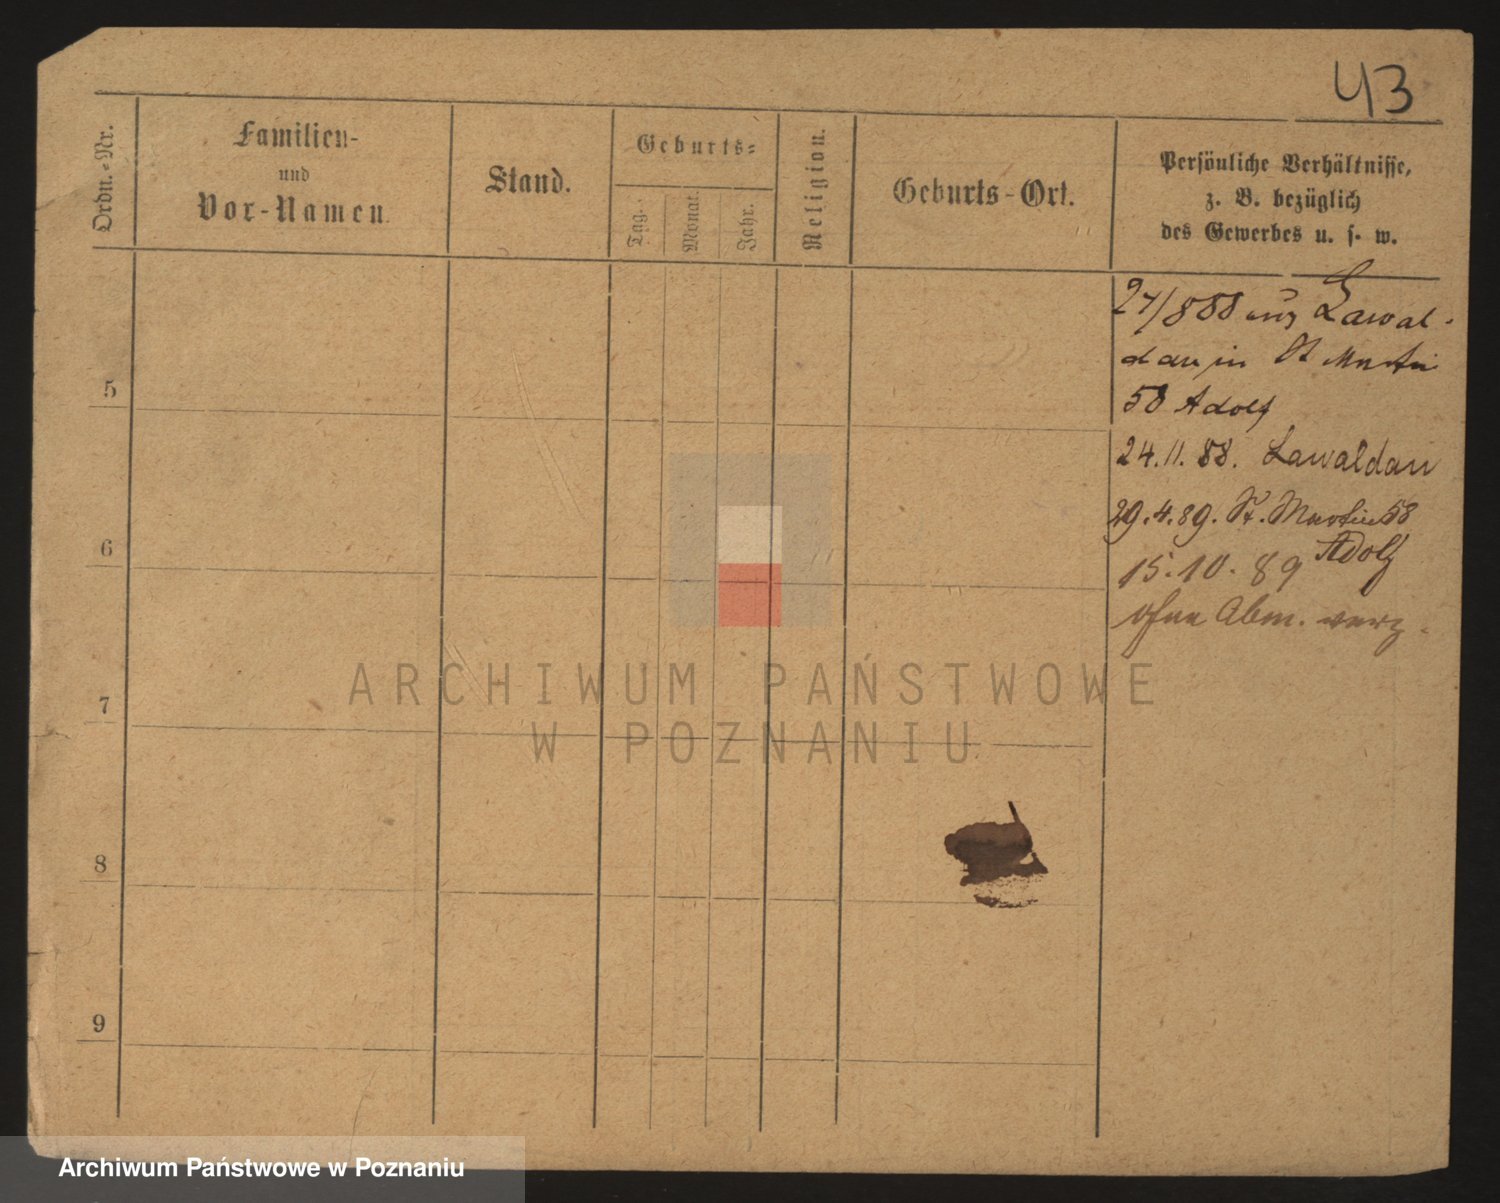 43
Ordn.-Nr.
Familien-
und
Vor-Namen.
Stand.
Geburts-
Tag.
Monat.
Jahr.
Religion.
Geburts-Ort.
Persönliche Verhältnisse,
z. B. bezüglich
des Gewerbes u. s. w.
5
6
7
8
9
27/888 aus Lawal-
dau in St Martin
58 Adolf
24.11.88. Lawaldau
29.4.89. St. Martin 58
Adolf
15.10.89
ohne Abm. verz.
ARCHIWUM PAŃSTWOWE
W POZNANIU
Archiwum Państwowe w Poznaniu